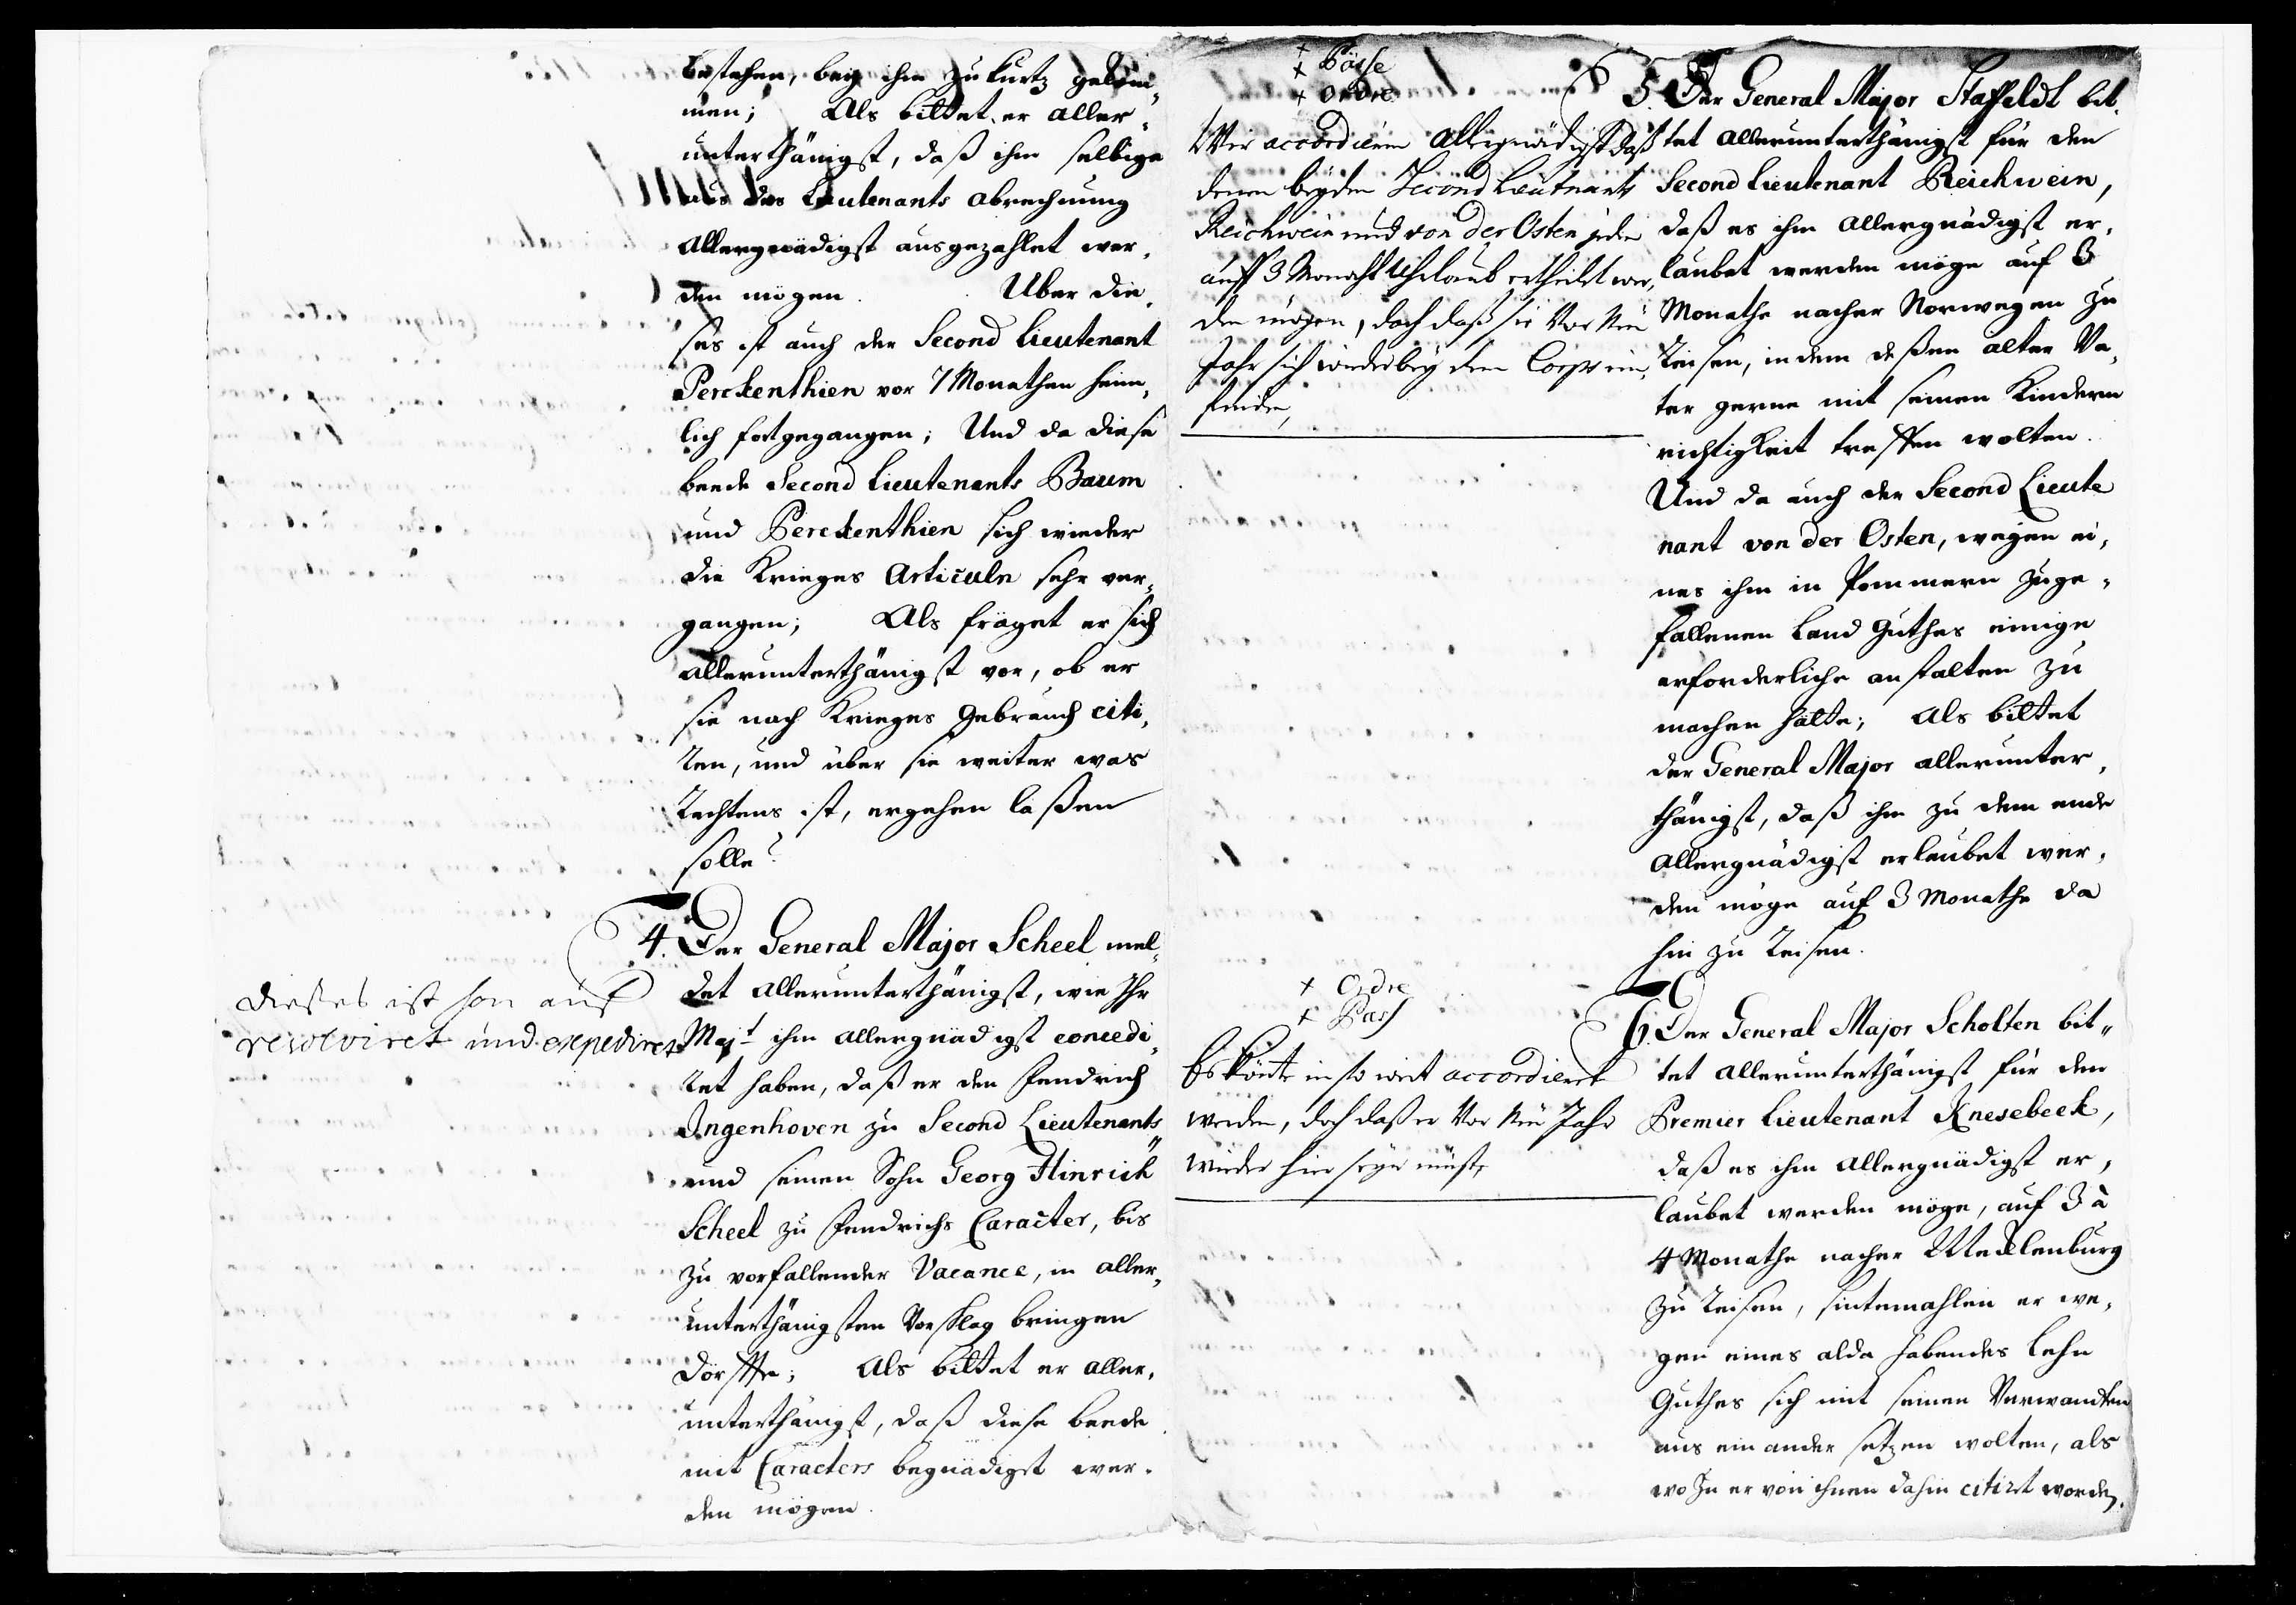 bestehen, bey ihm zu kurtz gekom¬
men; Als bittet er aller¬
unterthänigst, daß ihm selbige
aus des Lieutenants abrechnung
allergnädigst ausgezahlet wer¬
den mögen. Uber die¬
ses ist auch der Second Lieutenant
Perckenthien vor 7 Monathen heim¬
lich fortgegangen; Und da diese
beede Second Lieutenants Baum
und Perckenthien sich wieder
die Krieges Articuln sehr ver¬
gangen; Als fräget er sich
allerunterthänigst vor, ob er
sie nach Krieges gebrauch citi¬
ren, und über sie weiter was
rechtens ist, ergehen laßen
solle?
4. Der General Major Scheel mel¬
det allerunterthänigst, wie Ihr
Majt ihm allergnädigst concedi¬
ret haben, daß er den Fendrich
Ingenhoven zu Second Lieutenants
und seinen Sohn Georg Hinrich
Scheel zu Fendrichs Caracter, bis
zu vorfallender Vacance, in aller¬
unterthänigsten Vorschlag bringen
dörffte; Als bittet er aller¬
unterthänigst, daß diese beede
mit Caracters begnädigt wer¬
den mögen.
dießes ist son auf
resolviret und expediret
+ Pässe
+ Ordre
Wir accordieren allergnädigst daß
denen beyden Second Leutnants
Reichwein und von der Osten jeden
auff 3 Monaht Uhrlaub ertheilet wer¬
den mögen, doch daß sie Vor Neu
Jahr sich wieder bey dem Corps ein¬
finden,
5. Der General Major Staffeldt bit¬
tet allerunterthänigst für den
Second Lieutenant Reichwein,
daß es ihm allergnädigst er¬
laubet werden möge auf 3
Monathe nacher Norwegen zu
reisen, indem deßen alter Va¬
ter gerne mit seinen Kindern
richtigkeit treffen wolten.
Und da auch der Second Lieute
nant von der Osten, wegen ei¬
nes ihm in Pommern zuge¬
fallenen Land Guthes einige
erforderliche anstalten zu
machen hätte; Als bittet
der General Major allerunter¬
thänigst, daß ihm zu dem ende
allergnädigst erlaubet wer¬
den möge auf 3 Monathe da
hin zu reisen.
+ Ordre
+ Pass
Es könte in so weit accordieret
werden, doch daß er Vor Neu Jahr
wieder hier seyn müste
6. Der General Major Scholten bit¬
tet allerunterthänigst für den
Premier Lieutenant Knesebeck,
daß es ihm allergnädigst er¬
laubet werden möge, auf 3 à
4 Monathe nacher Mecklenburg
zu reisen, sintemahlen er we¬
gen eines alda habendes Lehn
Guthes sich mit seinen Verwandten
aus ein ander setzen wolten, als
wozu er von ihnen dahin citirt worden.